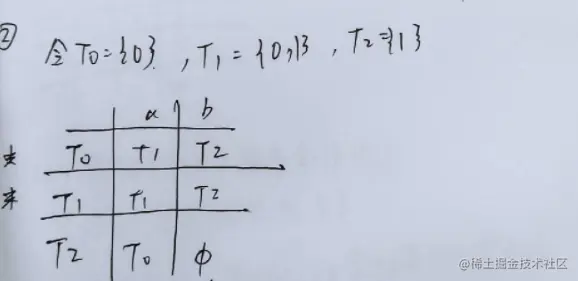 ② 令T₀={0}, T₁={0,1}, T₂={1}
a b
* T₀ T₁ T₂
* T₁ T₁ T₂
T₂ T₀ φ
@稀土掘金技术社区